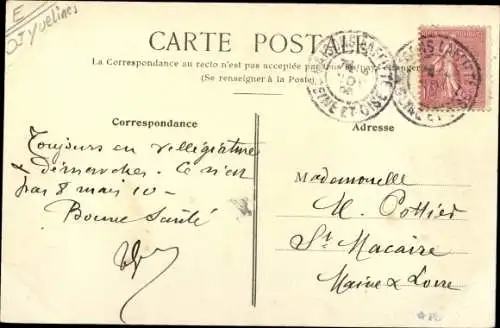 E
Yvelines
CARTE POSTALE
La Correspondance au recto n'est pas acceptée par tous les pays étrangers
(Se renseigner à la Poste)
MAISONS LAFFITTE
SEINE ET OISE
MAISONS LAFFITTE
SEINE ET OISE
Correspondance
Adresse
Toujours en villégiature
démarches. Ce n'est
pas 8 mais 10 —
Bonne Santé
Mademoiselle
M. Pottier
St Macaire
Maine & Loire